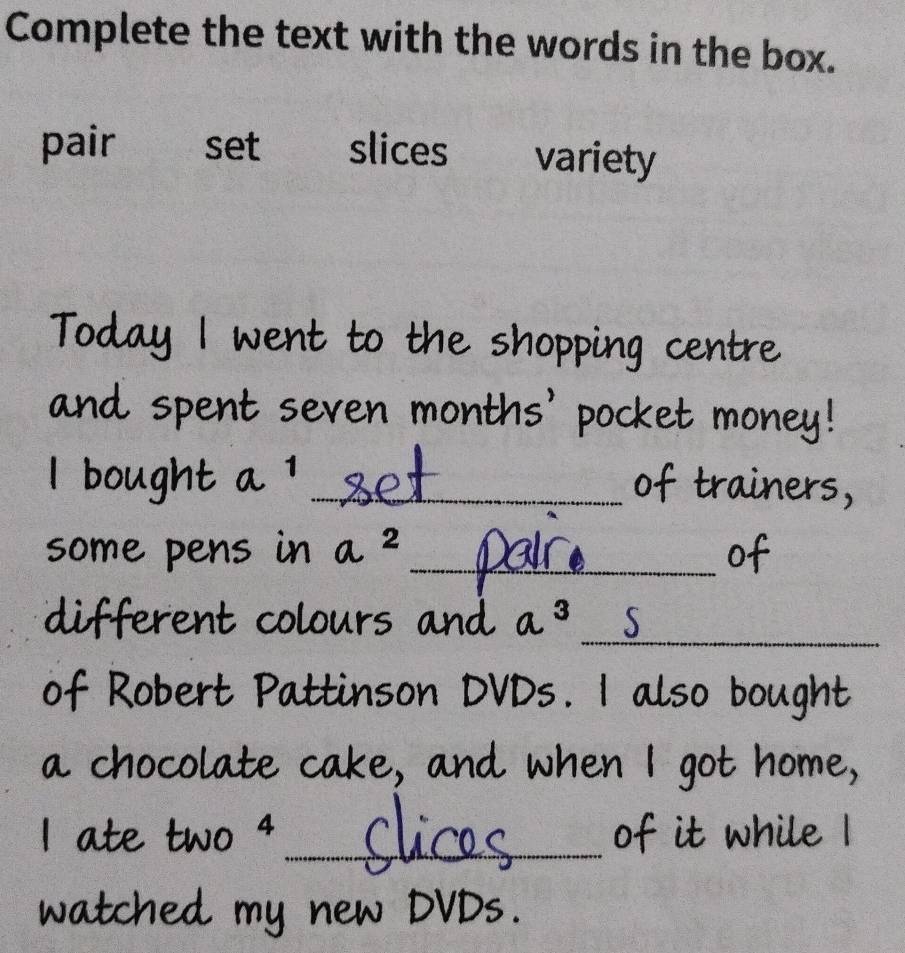 Complete the text with the words in the box.
pair set slices variety
Today I went to the shopping centre
and spent seven months' pocket money!
I bought a ¹ set of trainers,
some pens in a ² pair of
different colours and a ³ s
of Robert Pattinson DVDs. I also bought
a chocolate cake, and when I got home,
I ate two ⁴ slices of it while I
watched my new DVDs.